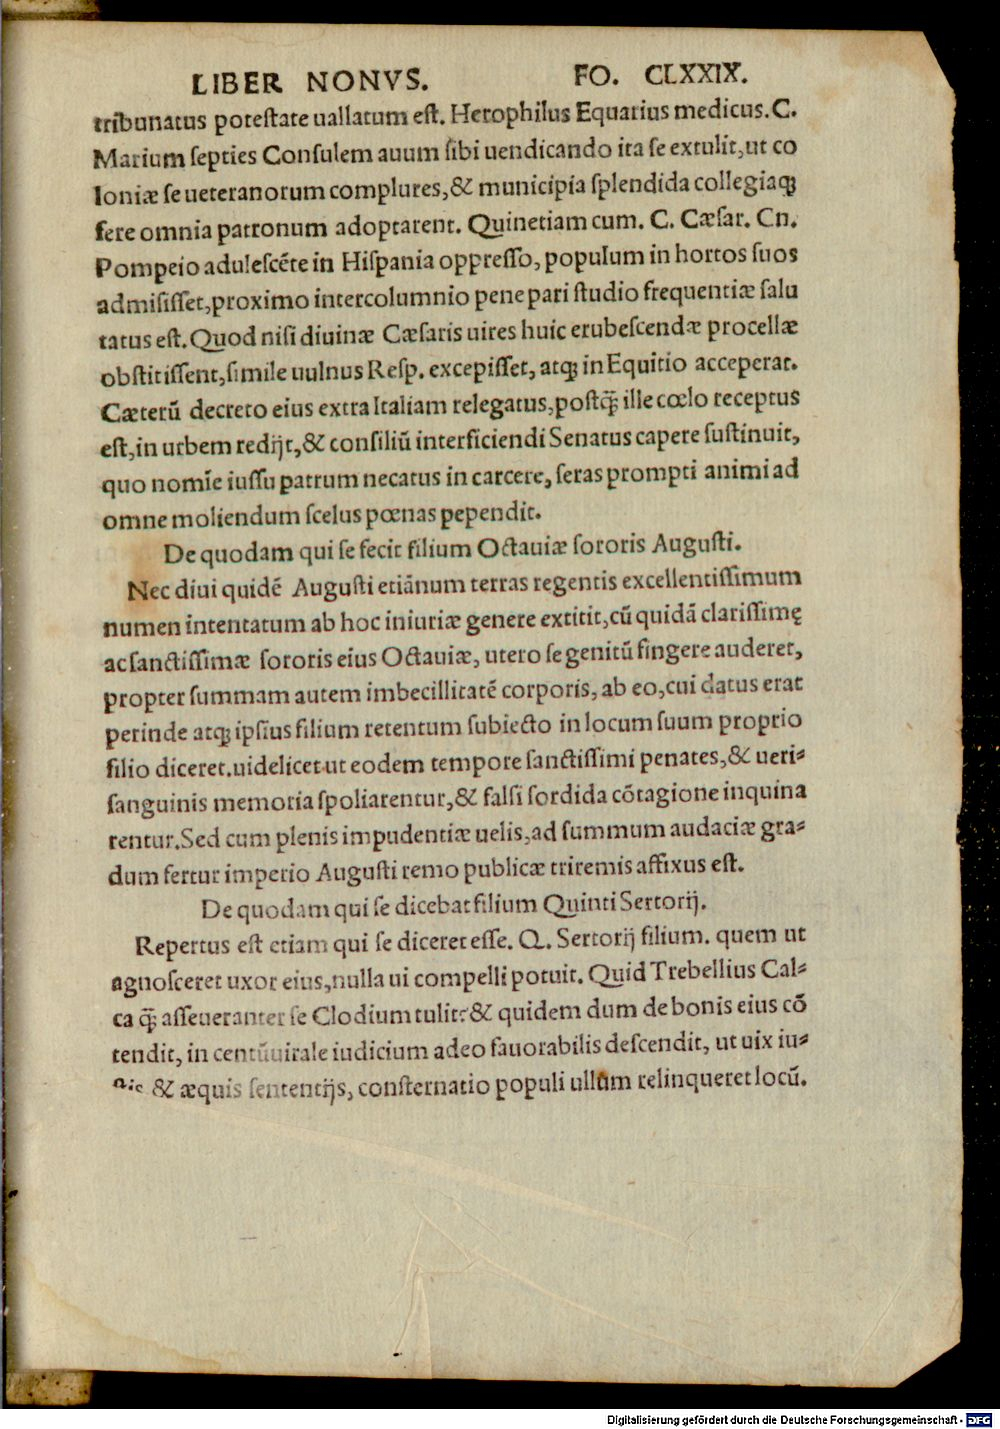 LIBER NONVS. FO. CLXXIX.
tribunatus potestate uallatum est. Herophilus Equarius medicus. C.
Marium septies Consulem auum sibi uendicando ita se extulit, ut co
loniæ se ueteranorum complures, & municipia splendida collegiaqꝫ
fere omnia patronum adoptarent. Quinetiam cum. C. Cæsar. Cn.
Pompeio adulescēte in Hispania oppresso, populum in hortos suos
admisisset, proximo intercolumnio pene pari studio frequentiæ salu
tatus est. Quod nisi diuinæ Cæsaris uires huic erubescendæ procellæ
obstitissent, simile uulnus Resp. excepisset, atqꝫ in Equitio acceperat.
Cæterū decreto eius extra Italiam relegatus, postq̄ꝫ ille cœlo receptus
est, in urbem redijt, & consiliū interficiendi Senatus capere sustinuit,
quo nomīe iussu patrum necatus in carcere, seras prompti animi ad
omne moliendum scelus pœnas pependit.
De quodam qui se fecit filium Octauiæ sororis Augusti.
Nec diui quidē Augusti etiānum terras regentis excellentissimum
numen intentatum ab hoc iniuriæ genere extitit, cū quidā clarissimę
ac sanctissimæ sororis eius Octauiæ, utero se genitū fingere auderet,
propter summam autem imbecillitatē corporis, ab eo, cui datus erat
perinde atqꝫ ipsius filium retentum subiecto in locum suum proprio
filio diceret. uidelicet ut eodem tempore sanctissimi penates, & ueri-
sanguinis memoria spoliarentur, & falsi sordida cōtagione inquina
rentur. Sed cum plenis impudentiæ uelis, ad summum audaciæ gra-
dum fertur imperio Augusti remo publicæ triremis affixus est.
De quodam qui se dicebat filium Quinti Sertorij.
Repertus est etiam qui se diceret esse. Q. Sertorij filium. quem ut
agnosceret uxor eius, nulla ui compelli potuit. Quid Trebellius Cal-
ca q̄ꝫ asseueranter se Clodium tulit? & quidem dum de bonis eius cō
tendit, in centūuirale iudicium adeo fauorabilis descendit, ut uix iu-
& æquis sententijs, consternatio populi ullum relinqueret locū.
Digitalisierung gefördert durch die Deutsche Forschungsgemeinschaft - DFG